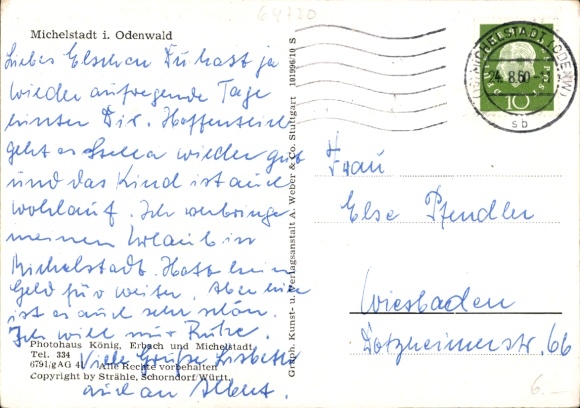 64720
Michelstadt i. Odenwald
Liebes Elschen Du hast ja
wieder aufregende Tage
hinter Dir. Hoffentlich
geht es Stella wieder gut
und das Kind ist auch
wohlauf. Ich verbringe
meinen Urlaub in
Michelstadt. Hatte kein
Geld für weiter. Aber hier
ist es auch sehr schön.
Ich will nur Ruhe.
Viele Grüße Lisbeth
auch an Albert.
Photohaus König, Erbach und Michelstadt
Tel. 334
6791/gAG 4 Alle Rechte vorbehalten
Copyright by Strähle, Schorndorf/Württ.
Graph. Kunst- u. Verlagsanstalt A. Weber & Co. Stuttgart 101996/10 S
MICHELSTADT (ODENW)
24. 8.60
sb
10
Frau
Else Pfendler
Wiesbaden
Dotzheimerstr. 66
6.-